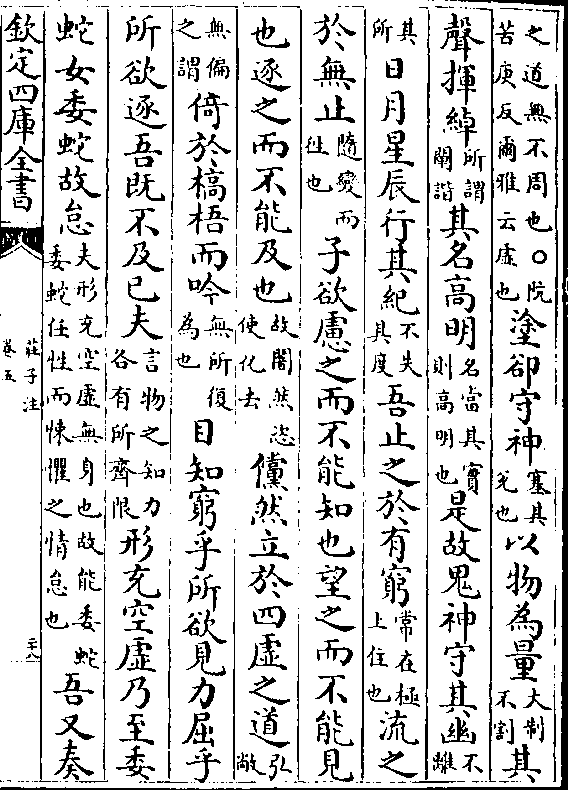 之道無不周也○阬苦庚反爾雅云虛也塗卻守神塞其兊也以物為量大制不割其
聲揮綽所謂闡諧其名高明名當其實則高明也是故鬼神守其幽不離
其所日月星辰行其紀不失其度吾止之於有窮常在極上住也流之
於無止隨變而往也子欲慮之而不能知也望之而不能見
也逐之而不能及也故闇然恣使化去儻然立於四虛之道弘敞
無偏之謂倚於槁梧而吟無所復為也目知窮乎所欲見力屈乎
所欲逐吾既不及已夫言物之知力各有所齊限形充空虛乃至委
蛇女委蛇故怠夫形充空虛無身也故能委蛇委蛇任性而悚懼之情怠也吾又奏
欽定四庫全書
莊子注
卷五
二十八